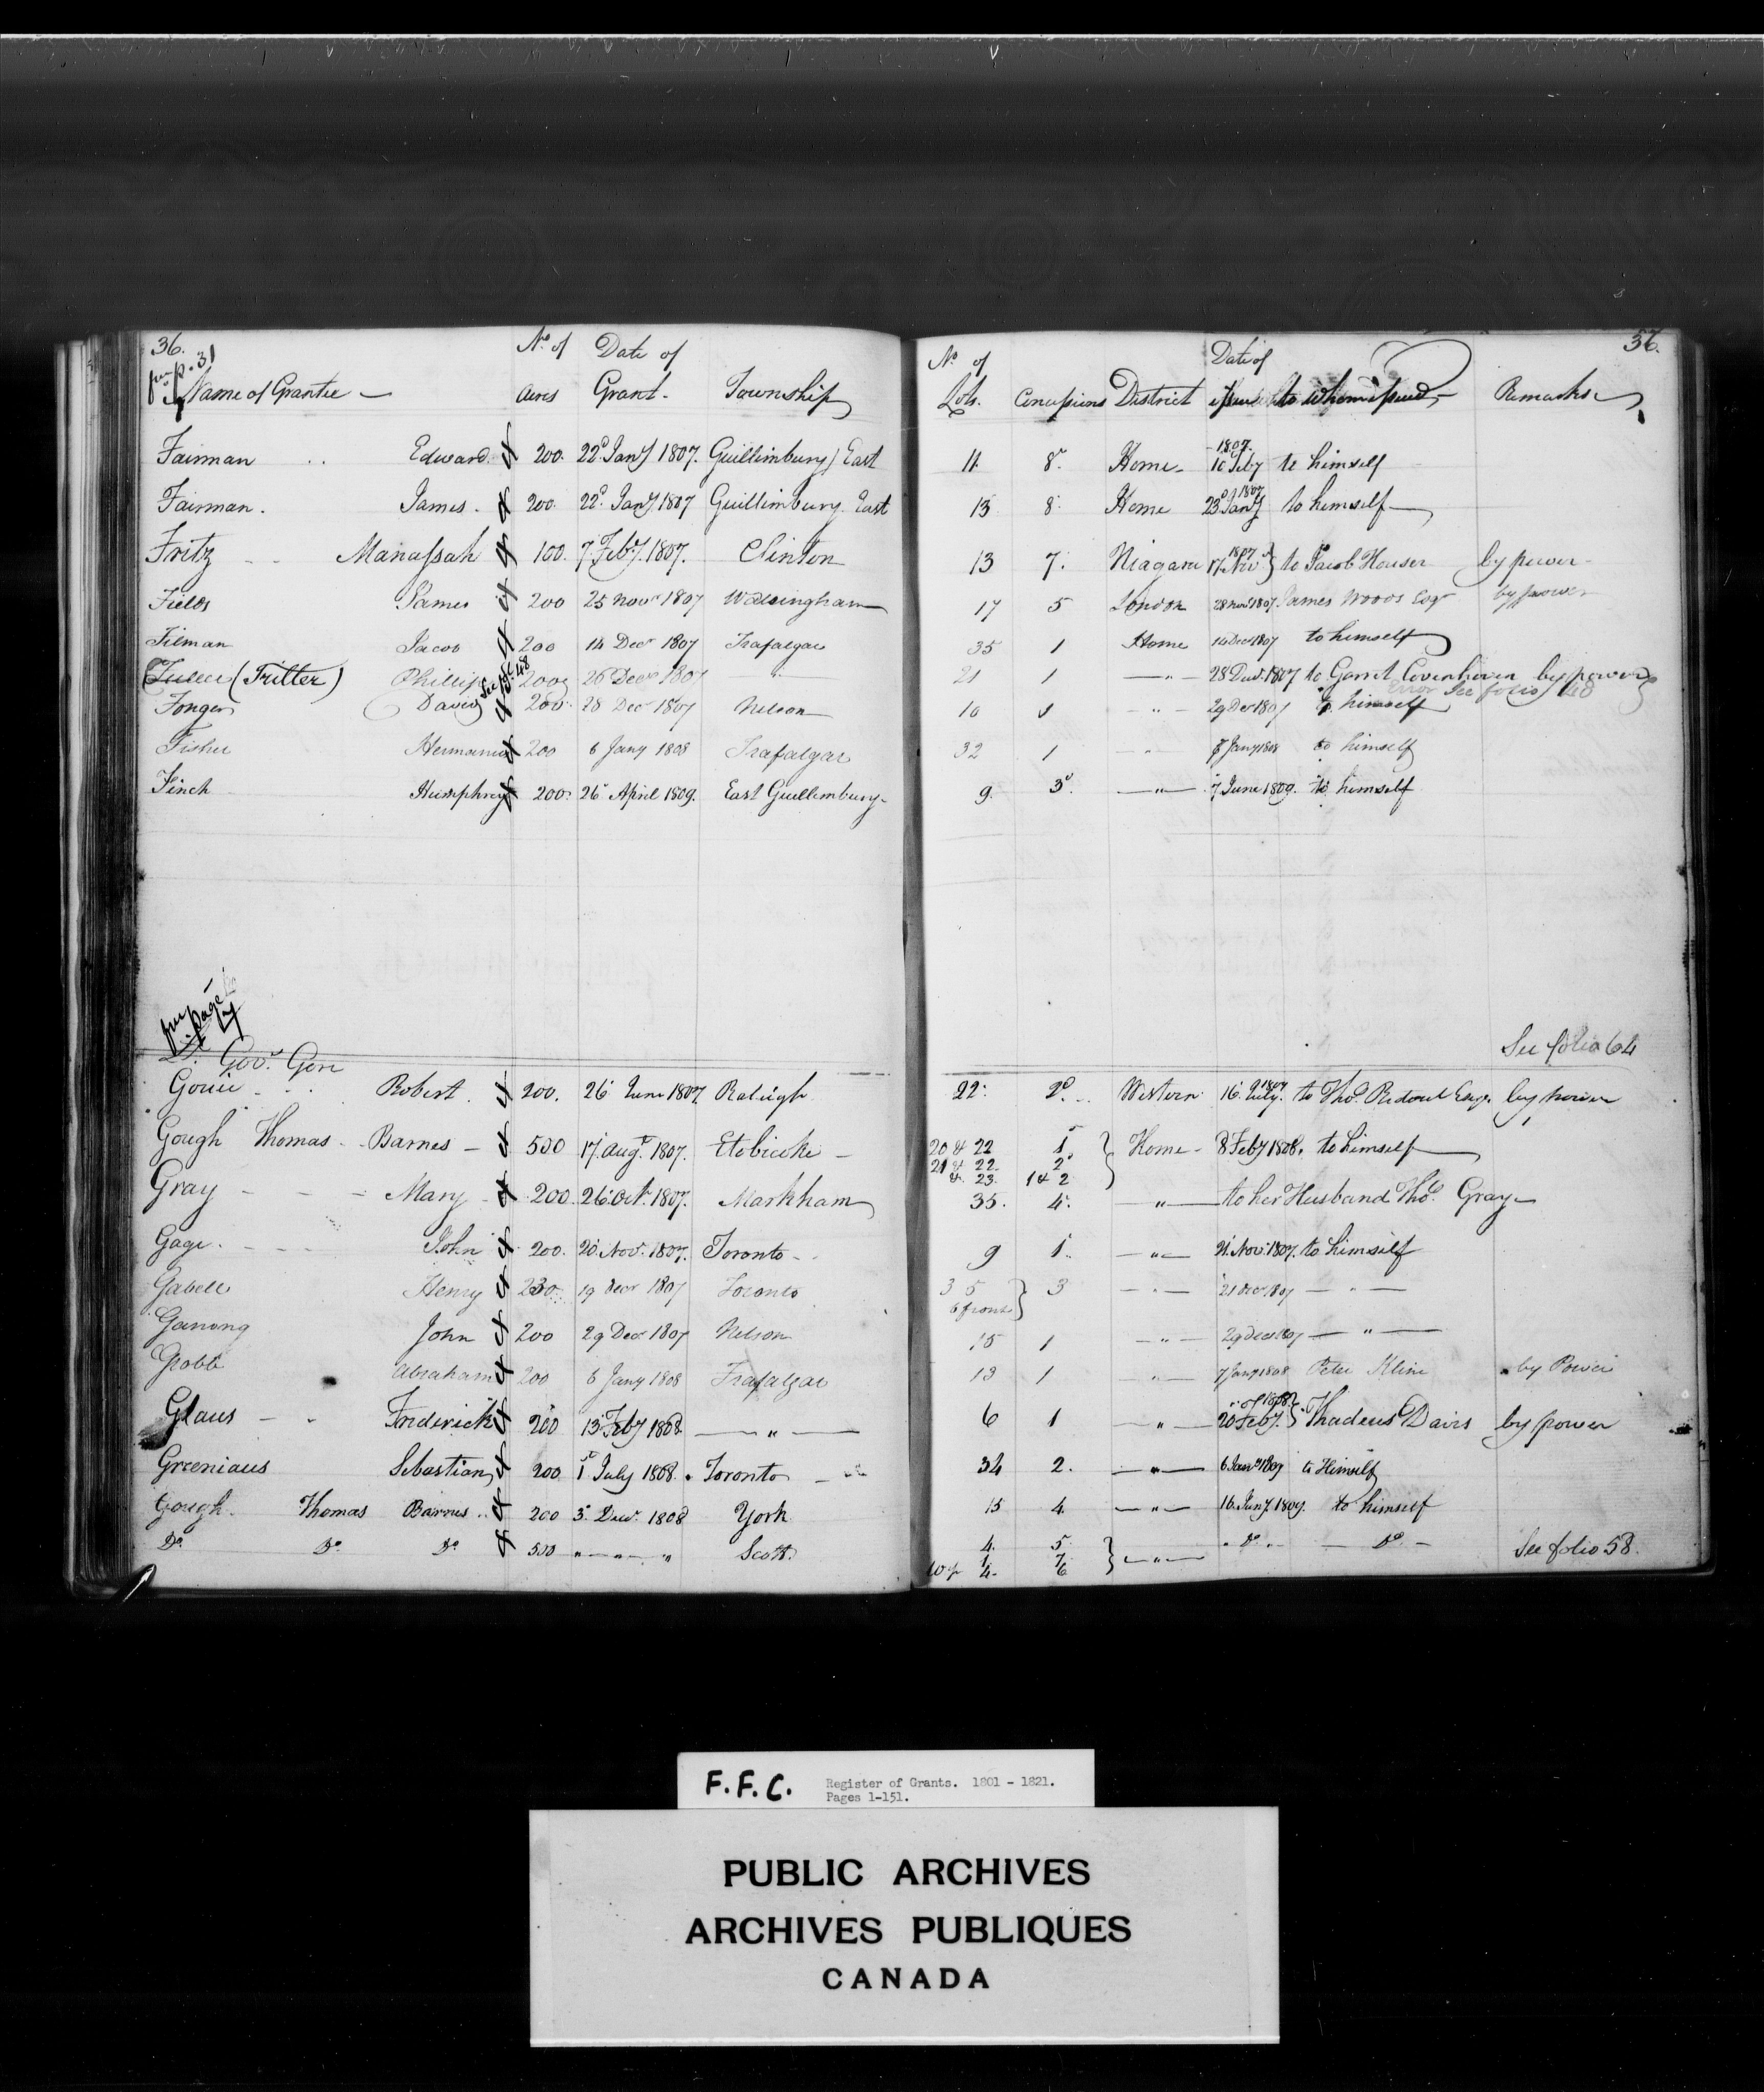 36. 36.
from p. 31
Name of Grantee — No. of Acres Date of Grant. Township No. of Lots. Concessions District Date of issue to whom issued Remarks
Fairman Edward 200. 22d. Jany 1807. Guillimbury East 11. 8. Home 1807 10 Feby to himself
Fairman. James. 200. 22d. Jany 1807 Guillimbury East 13 8. Home 1807 23d Jany to himself
Fritz Manassah 100. 7. Feby. 1807. Clinton 13 7. Niagara 1807 17 Nov to Jacob Houser by power
Fields James 200 25 Novr 1807 Walsingham 17 5 London 28 Novr 1807. James Woods Esqr by power
Filman Jacob 200 14 Decr 1807 Trafalgar 35 1 Home 14 Decr 1807 to himself
(Fritter) Phillip See fol. 48 200 26 Decr 1807 " 21 1 —"— 28 Decr. 1807 to Garret Covenhoven by power
Error See folio 48
Fonger David 200. 28 Decr 1807 Nelson 10 1 —"— 29 Decr 1807 to himself
Fisher Hermanus 200 6 Jany 1808 Trafalgar 32 1 —"— 8 Jany 1808 to himself
Finch Humphrey 200. 26 April 1809. East Guillimbury. 9. 3d. —"— 7 June 1809. to himself
See folio 64
from page
Lt. Govr. Gore
Robert. 200. 26 June 1807 Raleigh 22. 2d. Western 16. July. 1807 to Thos. Ridout Esqr. by power
Gough Thomas Barnes — 500 17. Augt. 1807. Etobicoke — 20 & 22 1 Home 8 Feby 1808. to himself
21 & 22. 2
& 23. 1 & 2
Gray Mary 200. 26 Octr. 1807. Markham 35. 4. —"— to her Husband Thos. Gray
Gage. John 200. 20 Novr. 1807. Toronto 9 1. —"— 21. Novr. 1807. to himself
Gabell Henry 230 19 Decr 1807 Toronto 3 5 3 —"— 21 Decr 1807 —"—
6 front
Ganong John 200 29 Decr 1807 Nelson 15 1 —"— 29 Decr 1807 —"—
Grobb Abraham 200 6 Jany 1808 Trafalgar 13 1 —"— 7 Jany 1808 Peter Kline by Power
Glaus Frederick 200 13 Feby 1808. —"— 6 1 —"— 20 Feby. 1808. Thadeus Davis by power
Greeniaus Sebastian 200 1st July 1808. Toronto 34 2. —"— 6 Jany 1809 to Himself
Gough. Thomas Barnes 200 3. Decr. 1808 York 15 4. —"— 16. Jany. 1809. to himself
Do. Do. Do 500 "—"—" Scott. 4. 5. —"— Do. Do. See folio 58.
1. 7.
4. 6
F.F.C. Register of Grants. 1801 - 1821.
Pages 1-151.
PUBLIC ARCHIVES
ARCHIVES PUBLIQUES
CANADA